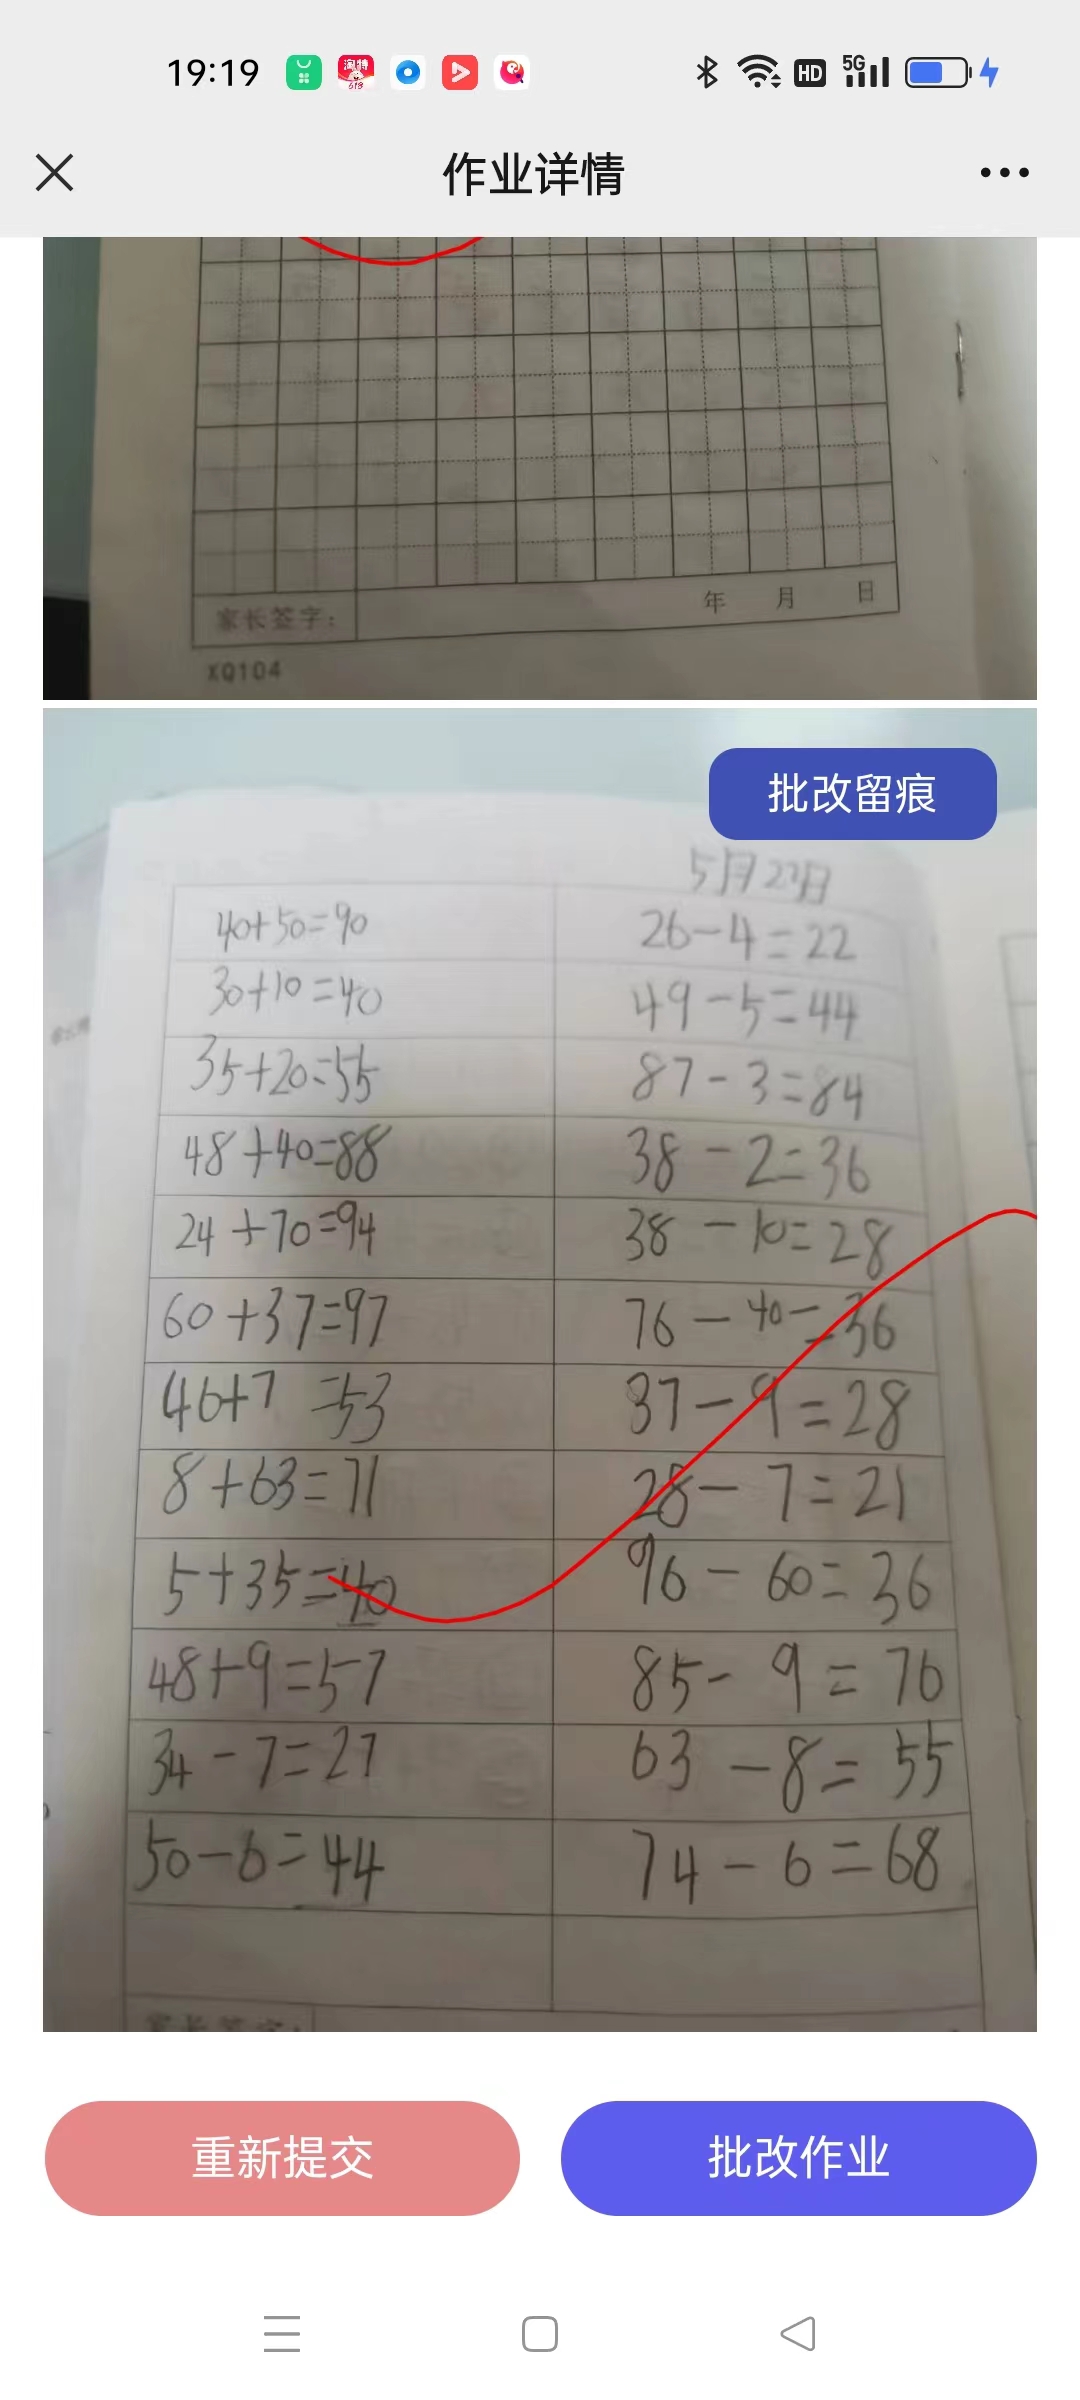 19:19
淘特
618
HD
5G
作业详情
年 月 日
家长签字:
XQ104
批改留痕
40+50=90
30+10=40
35+20=55
48+40=88
24+70=94
60+37=97
46+7=53
8+63=71
5+35=40
48+9=57
34-7=27
50-6=44
26-4=22
49-5=44
87-3=84
38-2=36
38-10=28
76-40=36
37-9=28
28-7=21
96-60=36
85-9=76
63-8=55
74-6=68
重新提交
批改作业